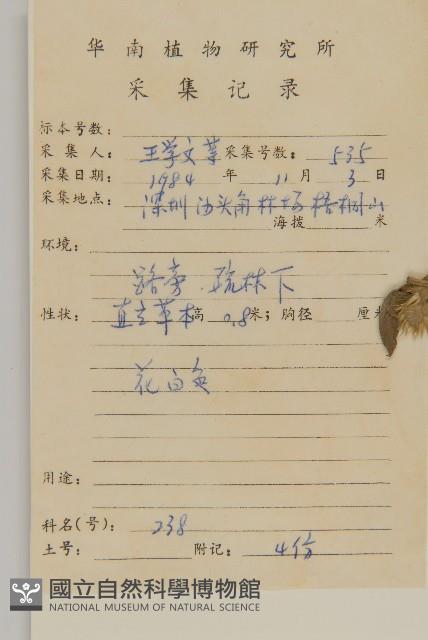 华南植物研究所
采集记录
标本号数：
采集人：王学文等 采集号数：535
采集日期：1984年11月3日
采集地点：深圳沙头角林场梧桐山
海拨 米
环境：
路旁．疏林下
性状：直立草本高0.8米；胸径 厘米
花白色
用途：
科名(号)：238
土号： 附记：4份
國立自然科學博物館
NATIONAL MUSEUM OF NATURAL SCIENCE